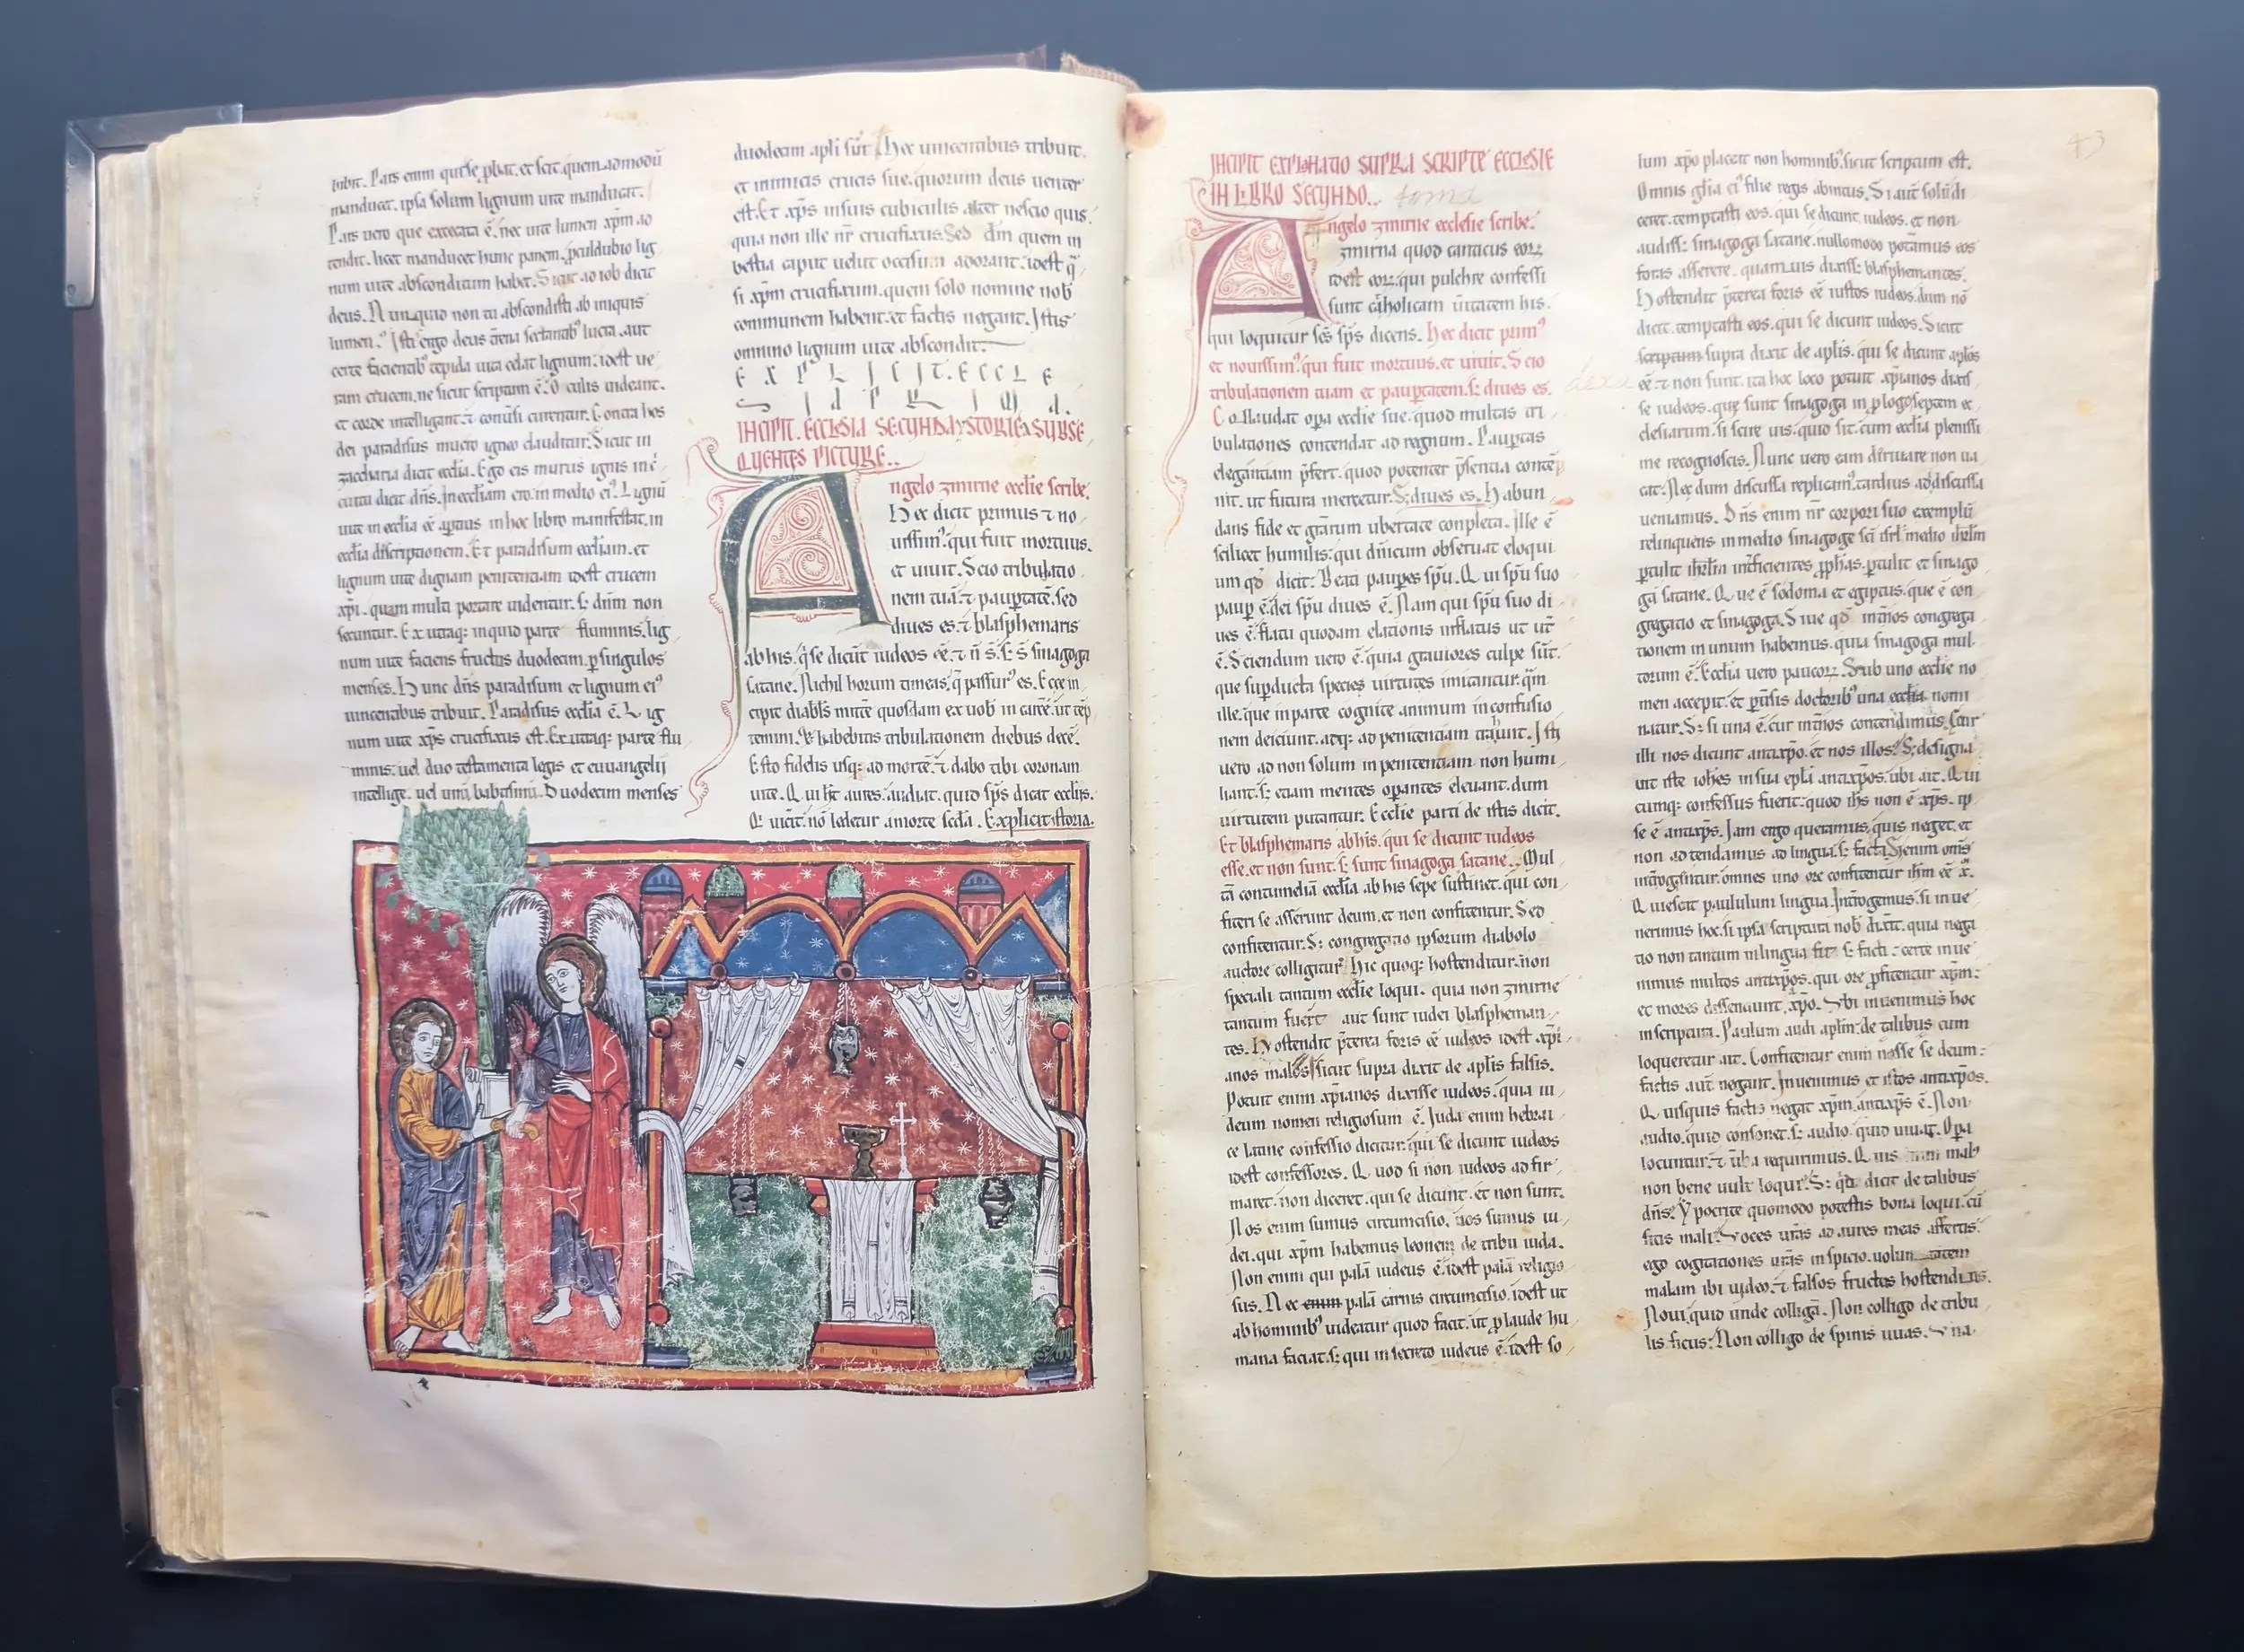 iubit. Pars enim que se p̱bat. et scit quem admodū
manducet. ipsa solum lignum uite manducat.
Pars uero que execata ē. nec uite lumen xp̄m ad
tendit. licet manducet hunc panem. p̱culdubio lig
num uite absconditum habet. Sicut ad iob dicit
deus. Nunquid non tu abscondisti ab iniquis
lumen. Isti ergo deus
certe facientib⁹ tepida uita celat lignum. idest ue
ram crucem. ne sicut scriptum ē. Oculis uideant.
et corde intelligant. ⁊ conuersi curentur. Contra hos
dei paradisus muro igneo clauditur. Sicut in
zaccharia dicit ecclia. Ego eis murus ignis in
cuitu dicit dn̄s. In eccliam ero in medio ei⁹. Lignū
uite in ecclia eē aptius in hoc libro manifestat. in
ecclia discriptionem. Et paradisum eccliam. et
lignum uite dignam penitentiam idest crucem
xp̄i. quam multi portare uidentur. s; dn̄m non
secuntur. Ex utraq; inquid parte fluminis. lig
num uite faciens fructus duodecim. p̱ singulos
menses. Hunc dn̄s paradisum et lignum ei⁹
uincentibus tribuit. Paradisus ecclia ē. Lig
num uite xp̄s crucifixus est. Ex utraq; parte flu
minis. uel duo testamenta legis et euuangelij
intellige. uel unū babtismū. Duodecim menses
duodecim apli sūt. Hec uincentibus tribuit.
et inimicis crucis sue. quorum deus uenter
est. Et xp̄s in suis cubiculis alter nescio quis.
quia non ille nr̄ crucifixus. Sed dn̄m quem in
bestia caput uelut occisum adorant. idest q̄
si xp̄m crucifixum. quem solo nomine nob
communem habent. et factis negant. Istis
omnino lignum uite abscondit.
EXPLICIT. ECCLE
SIA PRIMA.
INCIPIT. ECCLESIA SECUNDA YSTORIE SUBSE
QUENTES PICTURE..
Angelo zmirne ecclie scribe.
Hec dicit primus ⁊ no
uissim⁹. qui fuit mortuus.
et uiuit. Scio tribulatio
nem tuā. ⁊ paup̱tatē. sed
diues es. ⁊ blasphemaris
ab his. q̄ se dicūt iudeos eē. ⁊ n̄ s. s; s̄ sinagoga
satane. Nichil horum timeas. q̄ passur⁹ es. Ecce in
cipit diabl̄s mittē quosdam ex uob in carcē. ut tēp
temini. ⁊ habebitis tribulationem diebus decē.
Esto fidelis usq; ad mortē. ⁊ dabo tibi coronam
uite. Qui ht̄ aures. audiat. quid sp̄s dicat ecclijs.
Q̇ uicit. nō ledetur a morte sc̄da. Explicit storia.
INCIPIT EXPLANATIO SUPRA SCRIPTE ECCLESIE
IN LIBRO SECUNDO..
Angelo zmirne ecclesie scribe.
zmirna quod canticus eoꝝ
idest eoꝝ. qui pulchre confessi
sunt catholicam ūitatem his.
qui loquitur sc̄s sp̄s dicens. Hec dicit prim⁹
et nouissim⁹. qui fuit mortuus. et uiuit. Scio
tribulationem tuam et paup̱tatem. s; diues es.
Collaudat op̱a ecclie sue. quod multas tri
bulationes contendat ad regnum. Paup̱tas
elegantiam p̄fert. quod potenter p̄sentia contēp
nit. ut futura mercetur. S; diues es. Habun
dans fide et gr̄arum ubertate completa. Ille ē
scilicet humilis. qui dn̄icum obseruat eloqui
um qd̄ dicit. Beati paup̱es spū. Qui spū suo
paup̱ ē. dei spū diues ē. Nam qui spū suo di
ues ē. flatu quodam elationis inflatus ut utr̄
ē. Sciendum uero ē. quia grauiores culpe sūt.
que sup̱ducta species uirtutes imitantur. qm̄
ille. que in parte cognite animum in confusio
nem deiciunt. atq; ad penitentiam trahunt. Isti
uero ad non solum in penitentiam non humi
liant. s; etiam mentes op̱antes eleuant. dum
uirtutem putantur. Ecclie parti de istis dicit.
Et blasphemaris ab his. qui se dicunt iudeos
esse. et non sunt. s; sunt sinagoga satane.. Mul
tā contumeliā ecclia ab his sepe sustinet. qui con
fiteri se asserunt deum. et non confitentur. Sed
confitentur. S; congregatio ipsorum diabolo
auctore colligitur. Hic quoq; hostenditur. non
speciali tantum ecclie loqui. quia non zmirne
tantum fuer̄t aut sunt iudei blaspheman
tes. Hostendit p̄terea foris eē iudeos idest xp̄i
anos malos. sicut supra dixit de aplis falsis.
Potuit enim xp̄ianos dixisse iudeos. quia iu
deum nomen religiosum ē. Iuda enim hebrai
ce latine confessio dicitur. qui se dicunt iudeos
idest confessores. Quod si non iudeos adfir
maret. non diceret. qui se dicunt. et non sunt.
Nos enim sumus circumcisio. nos sumus iu
dei. qui xp̄m habemus leonem de tribu iuda.
Non enim qui palā iudeus ē. idest palā religio
sus. Nec enim palā carnis circumcisio. idest ut
ab hominib⁹ uideatur quod facit. ut p̱ laude hu
mana faciat. s; qui in secreto iudeus ē. idest so
43
lum xp̄o placeat non hominib⁹. sicut scriptum est.
Omnis gl̄ia ei⁹ filie regis abintus. Si aut̄ solū di
ceret. temptasti eos. qui se dicunt iudeos. et non
audiss; sinagoga satane. nullomodo potamus eos
foras asserere. quamuis dixiss; blasphemantes.
Hostendit p̄terea foris eē iustos iudeos. dum nō
dicit. temptasti eos. qui se dicunt iudeos. Sicut
scriptum supra dixit de aplis. qui se dicunt aplos
eē. ⁊ non sunt. ita hoc loco potuit xp̄ianos dixis
se iudeos. que sunt sinagoga in p̱logo septem ec
clesiarum. si scire uis. quid sit. cum ecclia plenissi
me recognoscis. Nunc uero eam diriuare non ua
cat. Nec dum discussa replicam⁹. tardius ad discussa
ueniamus. Dn̄s enim nr̄ corpori suo exemplū
relinquens in medio sinagoge
p̱tulit ih̄rl̄m interficientes p̱phas. p̱tulit et sinago
ga satane. Que ē sodoma et egiptus. que ē con
gregatio et sinagoga. Siue qd̄ int̄ nos congrega
tionem in unum habemus. quia sinagoga mul
torum ē. Ecclia uero paucoꝝ. Sub uno ecclie no
men accepit. et p̱ uersis doctorib⁹ una ecclia nomi
natur. S; si una ē. cur int̄ nos contendimus. Cur
illi nos dicunt antixp̄o. et nos illos. S; designa
uit iste ioh̄es in sua epl̄a antixp̄os. ubi ait. Qui
cumq; confessus fuerit. quod ih̄s non ē xp̄s. ip
se ē antixp̄s. Iam ergo queramus. quis neget. et
non adtendamus ad lingua. s; facta. Si enim om̄s
int̄rogentur. omnes uno ore confitentur ih̄m eē x̄.
Quiescat paululum lingua. Int̄rogemus. si inue
nerimus hoc. si ipsa scriptura nob̄ dixit. quia nega
tio non tantum in lingua fit s; facti. certe inue
nimus multos antixp̄os. qui ore p̱fitentur xp̄m.
et mores dissentiunt xp̄o. Vbi inuenimus hoc
in scriptura. Paulum audi apl̄m. de talibus cum
loqueretur ait. Confitentur enim nosse se deum.
factis aut̄ negant. Inuenimus et istos antixp̄os.
Quisquis factis negat xp̄m. antixp̄s ē. Non
audio. quid consonet. s; audio. quid uiuat. Op̱a
locuntur. ⁊ ūba requirimus. Quis enim malus
non bene uult loqui. S; qd̄ dicit de talibus
dn̄s. Ypocrite quomodo potestis bona loqui. cū
sitis mali. Voces ur̄as ad aures meas affertis.
ego cogitationes ur̄as inspicio. uoluntatem
malam ibi uideo. ⁊ falsos fructus hostenditis.
Noui. quid unde colligā. Non colligo de tribu
lis ficus. Non colligo de spinis uuas. Vna